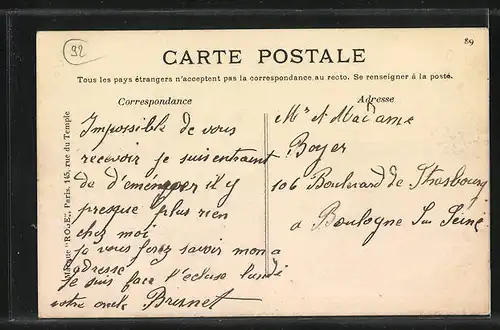 92
89
CARTE POSTALE
Tous les pays étrangers n'acceptent pas la correspondance au recto. Se renseigner à la poste.
Correspondance
Impossible de vous
recevoir je suis entraint
de d'eménager il y
presque plus rien
chez moi
je vous ferez savoir mon a
adresse
je suis face l'ecluse lundi
votre oncle Brunet
Adresse
Mr et Madame
Boyer
106 Boulevard de Strasbourg
a Boulogne Sur Seine
Marque "ROSE", Paris. 145, rue du Temple